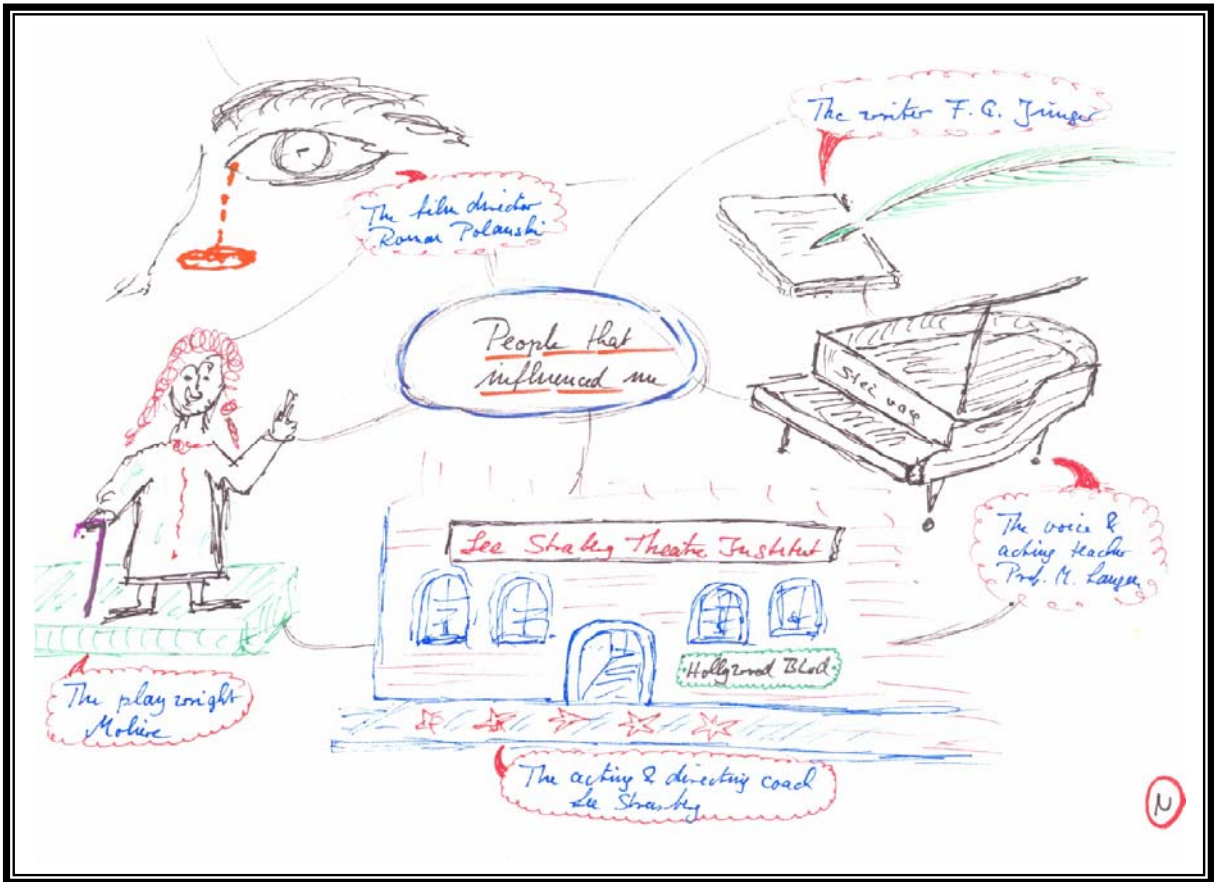 The writer F. G. Jünger
The film director
Roman Polanski
People that
influenced me
Steinway
The voice &
acting teacher
Prof. M. Langen
Lee Strasberg Theatre Institut
Hollywood Blvd
The playwright
Moliere
The acting & directing coach
Lee Strasberg
N